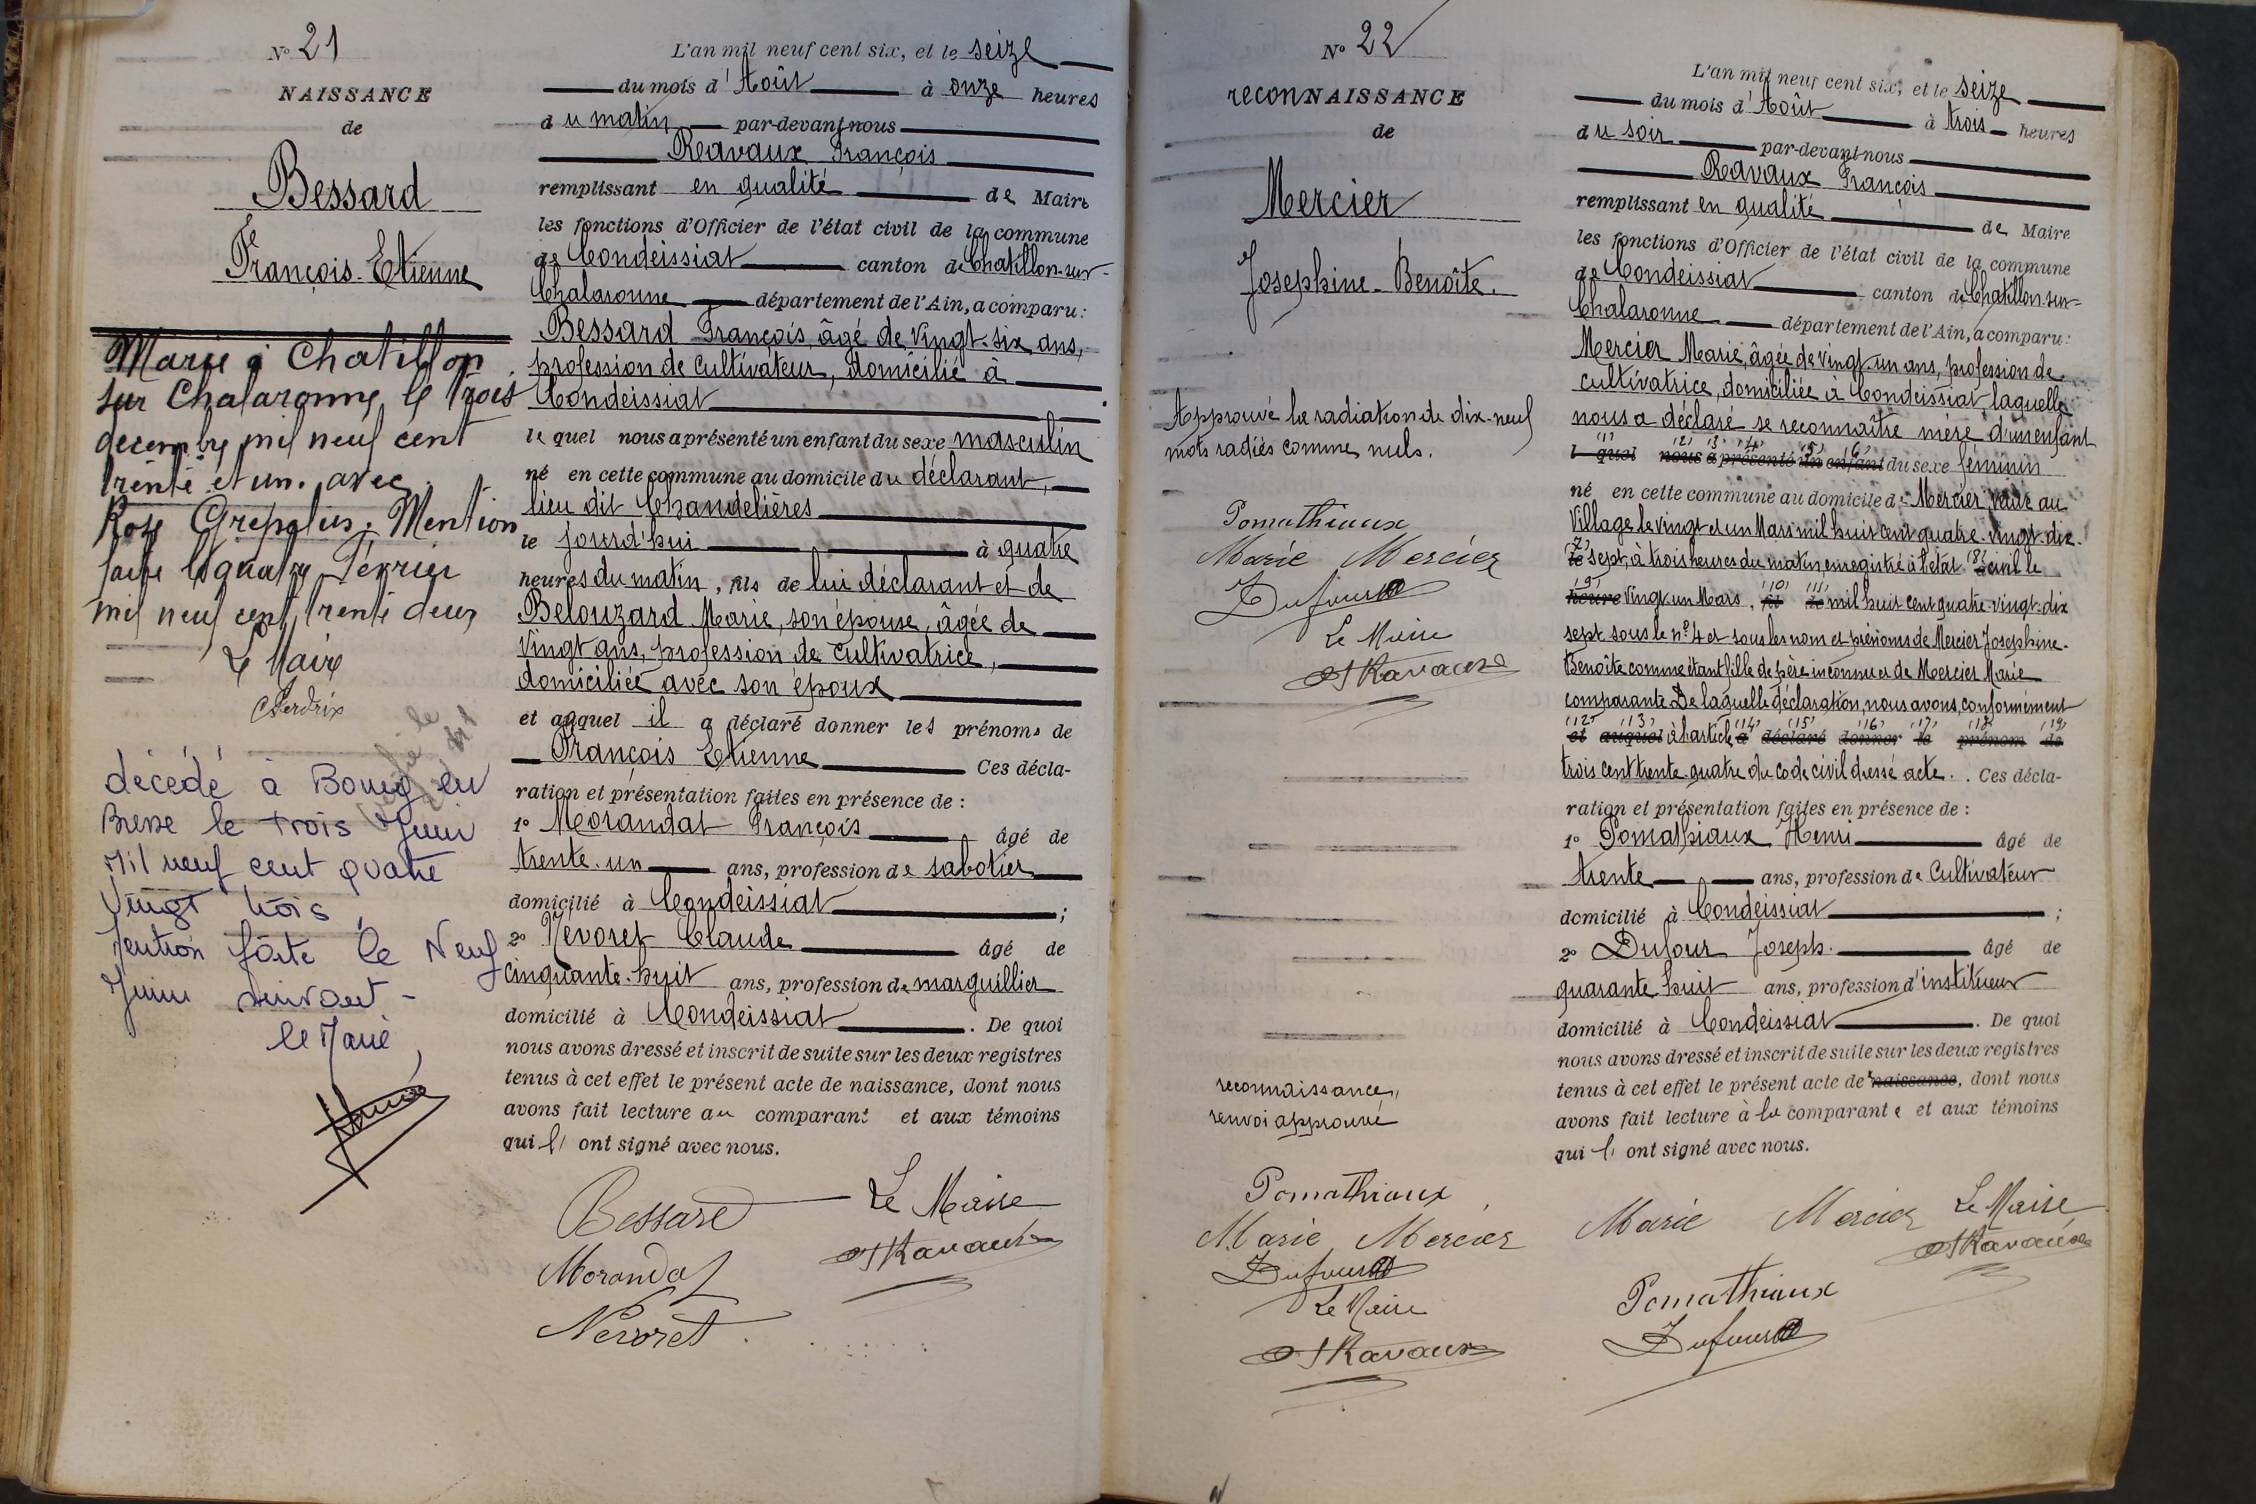 N° 21
NAISSANCE
de
Bessard
François-Etienne
Marié à Chatillon
sur Chalaronne le trois
décembre mil neuf cent
trente et un. avec
Rose Mention
faite le quatre Février
mil neuf cent trente deux
Le Maire
Perdrix
décédé à Bourg en
Bresse le trois Juin
Mil neuf cent quatre
Vingt trois
Mention faite le Neuf
Juin suivant -
le Maire
L'an mil neuf cent six, et le seize
du mois d'Août à onze heures
du matin par-devant nous
Ravaux François
remplissant en qualité de Maire
les fonctions d'Officier de l'état civil de la commune
de Condeissiat canton de Chatillon-sur-
Chalaronne département de l'Ain, a comparu:
Bessard François, âgé de vingt-six ans,
profession de cultivateur, domicilié à
Condeissiat
lequel nous a présenté un enfant du sexe masculin
né en cette commune au domicile du déclarant,
lieu dit Chandelières
le jourd'hui à quatre
heures du matin, fils de lui déclarant et de
Belouzard Marie, son épouse, âgée de
vingt ans, profession de cultivatrice,
domiciliée avec son époux
et auquel il a déclaré donner les prénoms de
François Etienne Ces décla-
ration et présentation faites en présence de :
1° Morandat François âgé de
trente-un ans, profession de sabotier
domicilié à Condeissiat ;
2° Névoret Claude âgé de
cinquante-huit ans, profession de marguillier
domicilié à Condeissiat. De quoi
nous avons dressé et inscrit de suite sur les deux registres
tenus à cet effet le présent acte de naissance, dont nous
avons fait lecture au comparant et aux témoins
qui l' ont signé avec nous.
Bessard Le Maire
Morandat Ravaux
Nevoret
N° 22
reconNAISSANCE
de
Mercier
Josephine-Benoîte.
Approuvé la radiation de dix-neuf
mots radiés comme nuls.
Pomathiaux
Marie Mercier
Dufour
Le Maire
Ravaux
reconnaissance,
renvoi approuvé
Pomathiaux
Marie Mercier
Dufour
Le Maire
Ravaux
L'an mil neuf cent six, et le seize
du mois d'Août à trois heures
du soir par-devant nous
Ravaux François
remplissant en qualité de Maire
les fonctions d'Officier de l'état civil de la commune
de Condeissiat canton de Chatillon-sur-
Chalaronne département de l'Ain, a comparu:
Mercier Marie, âgée de vingt-un ans, profession de
cultivatrice, domiciliée à Condeissiat laquelle
nous a déclaré se reconnaître mère d'un enfant
(1) (2) (3) (4) (5) (6)
l quel nous a présenté un enfant du sexe féminin
né en cette commune au domicile de Mercier, veuve au
Village le vingt et un Mars mil huit cent quatre-vingt-dix-
(7) le sept, à trois heures du matin, enregistré à l'état (8) à civil le
(9) heure vingt-un Mars, (10) fil (11) de mil huit cent quatre-vingt-dix
sept sous le n° 4 et sous les nom et prénoms de Mercier Josephine-
Benoîte comme étant fille de père inconnu et de Mercier Marie
comparante. De laquelle déclaration, nous avons, conformément
(12) (13) (14) (15) (16) (17) (18) (19)
et auquel à l'article a déclaré donner le prénom de
trois cent trente quatre du code civil dressé acte. . Ces décla-
ration et présentation faites en présence de :
1° Pomathiaux Henri âgé de
trente ans, profession de Cultivateur
domicilié à Condeissiat ;
2° Dufour Joseph. âgé de
quarante huit ans, profession d'instituteur
domicilié à Condeissiat. De quoi
nous avons dressé et inscrit de suite sur les deux registres
tenus à cet effet le présent acte de naissance, dont nous
avons fait lecture à la comparante et aux témoins
qui l' ont signé avec nous.
Marie Mercier Le Maire
Ravaux
Pomathiaux
Dufour